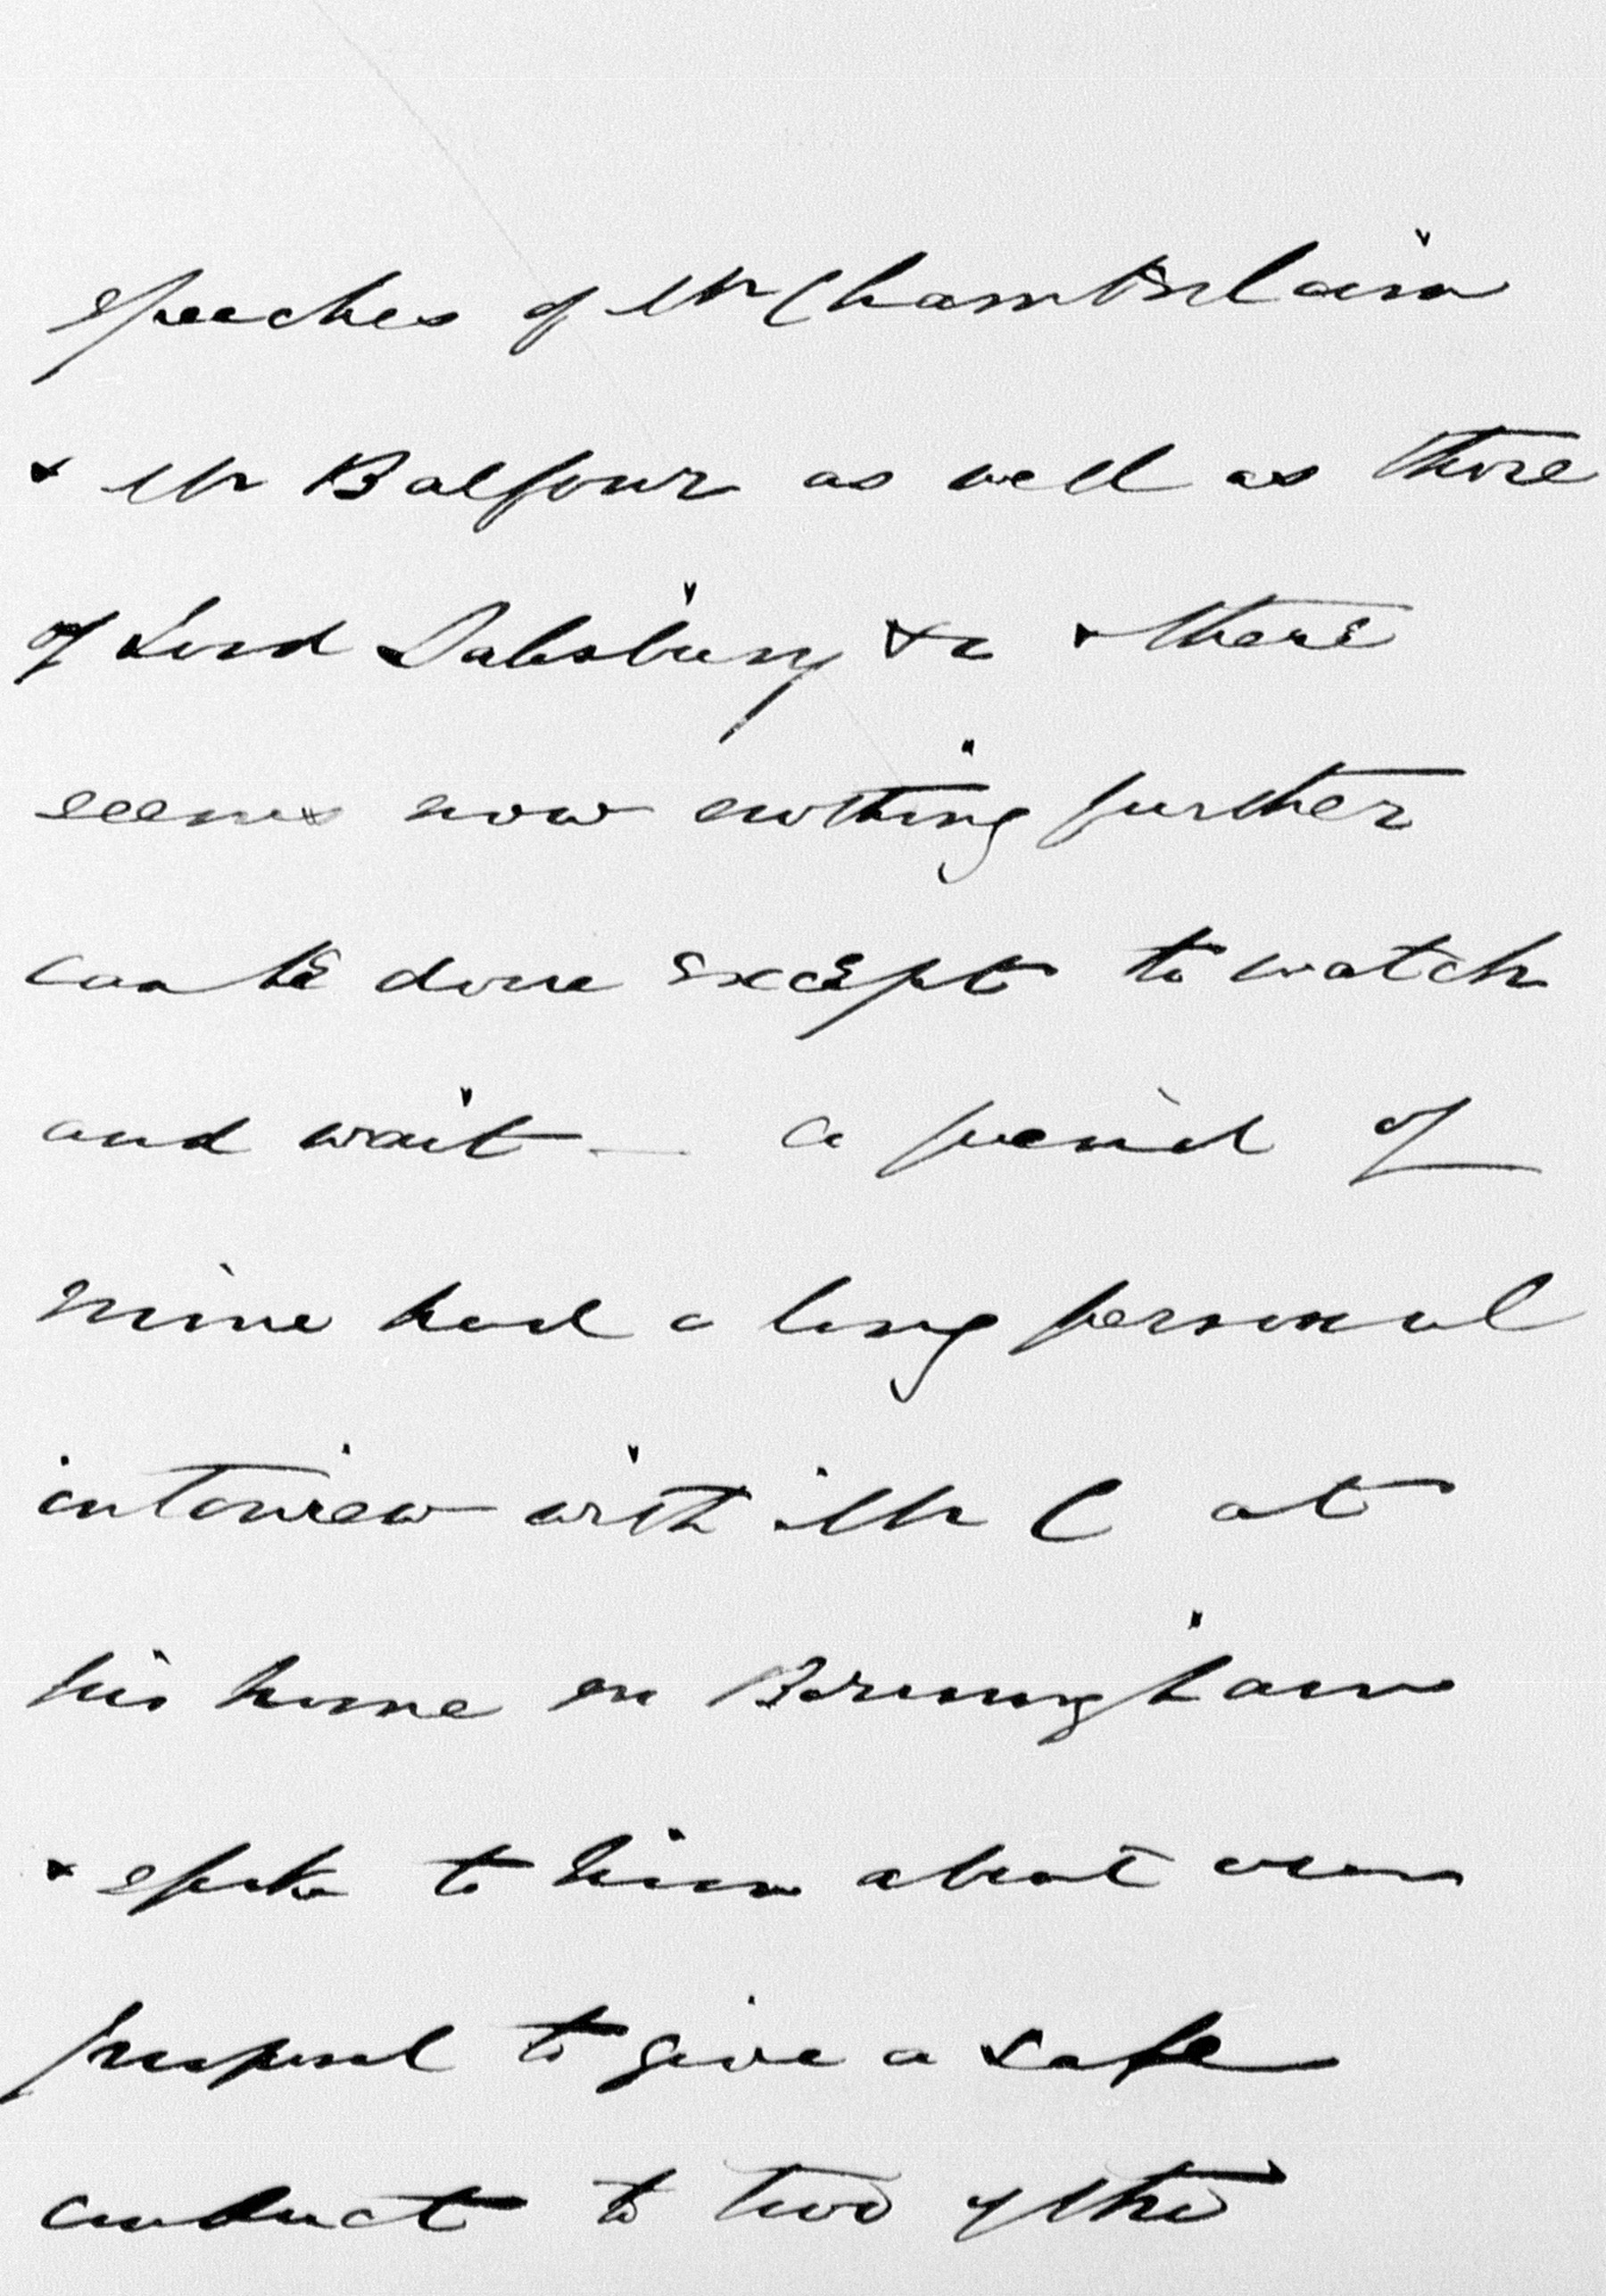 speeches of Mr Chamberlain
& Mr Balfour as well as those
of Lord Salisbury &c & there
seems now nothing further
can be done except to watch
and wait — a friend of
mine had a long personal
interview with Mr C at
his home in Birmingham
& spoke to him about our
proposal to give a safe
conduct to two of the